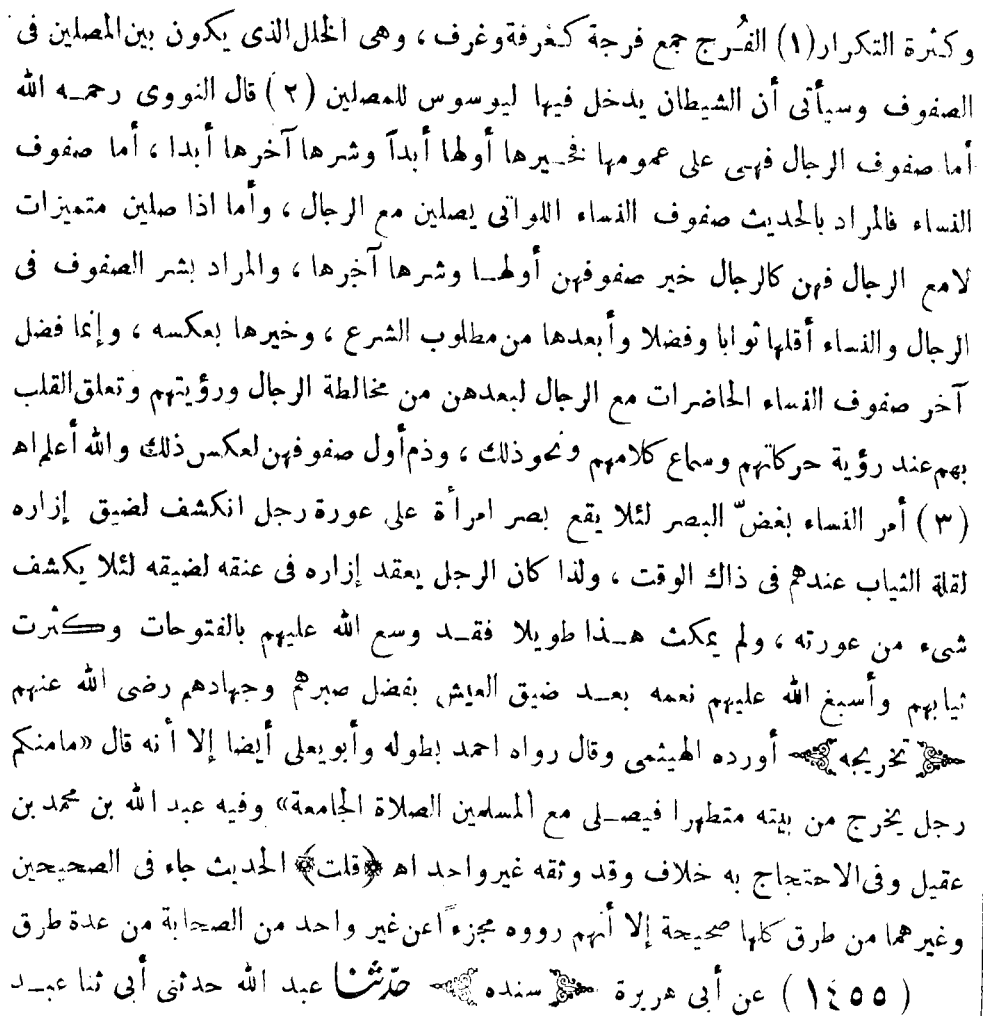 وكثرة التكرار (١) الفُرج جمع فرجة كغرفة وغرف ، وهى الخلل الذى يكون بين المصلين فى
الصفوف وسيأتى أن الشيطان يدخل فيها ليوسوس للمصلين (٢) قال النووى رحمه الله
أما صفوف الرجال فهى على عمومها فخيرها أولها أبداً وشرها آخرها أبدا ، أما صفوف
النساء فالمراد بالحديث صفوف النساء اللواتى يصلين مع الرجال ، وأما اذا صلين متميزات
لامع الرجال فهن كالرجال خير صفوفهن أولها وشرها آخرها ، والمراد بشر الصفوف فى
الرجال والنساء أقلها ثوابا وفضلا وأبعدها من مطلوب الشرع ، وخيرها بعكسه ، وإنما فضل
آخر صفوف النساء الحاضرات مع الرجال لبعدهن من مخالطة الرجال ورؤيتهم وتعلق القلب
بهم عند رؤية حركاتهم وسماع كلامهم ونحو ذلك ، وذم أول صفوفهن لعكس ذلك والله أعلم اه
(٣) أمر النساء بغضّ البصر لئلا يقع بصر امرأة على عورة رجل انكشف لضيق إزاره
لقلة الثياب عندهم فى ذاك الوقت ، ولذا كان الرجل يعقد إزاره فى عنقه لضيقه لئلا يكشف
شىء من عورته ، ولم يمكث هذا طويلا فقد وسع الله عليهم بالفتوحات وكثرت
ثيابهم وأسبغ الله عليهم نعمه بعد ضيق العيش بفضل صبرهم وجهادهم رضى الله عنهم
﴿تخريجه﴾ أورده الهيثمى وقال رواه احمد بطوله وأبو يعلى أيضا إلا أنه قال «مامنكم
رجل يخرج من بيته متطهرا فيصلى مع المسلمين الصلاة الجامعة» وفيه عبد الله بن محمد بن
عقيل وفى الاحتجاج به خلاف وقد وثقه غير واحد اه ﴿قلت﴾ الحديث جاء فى الصحيحين
وغيرهما من طرق كلها صحيحة إلا أنهم رووه مجزءاً عن غير واحد من الصحابة من عدة طرق
(١٤٥٥) عن أبى هريرة ﴿سنده﴾ حدّثنا عبد الله حدثنى أبى ثنا عبد